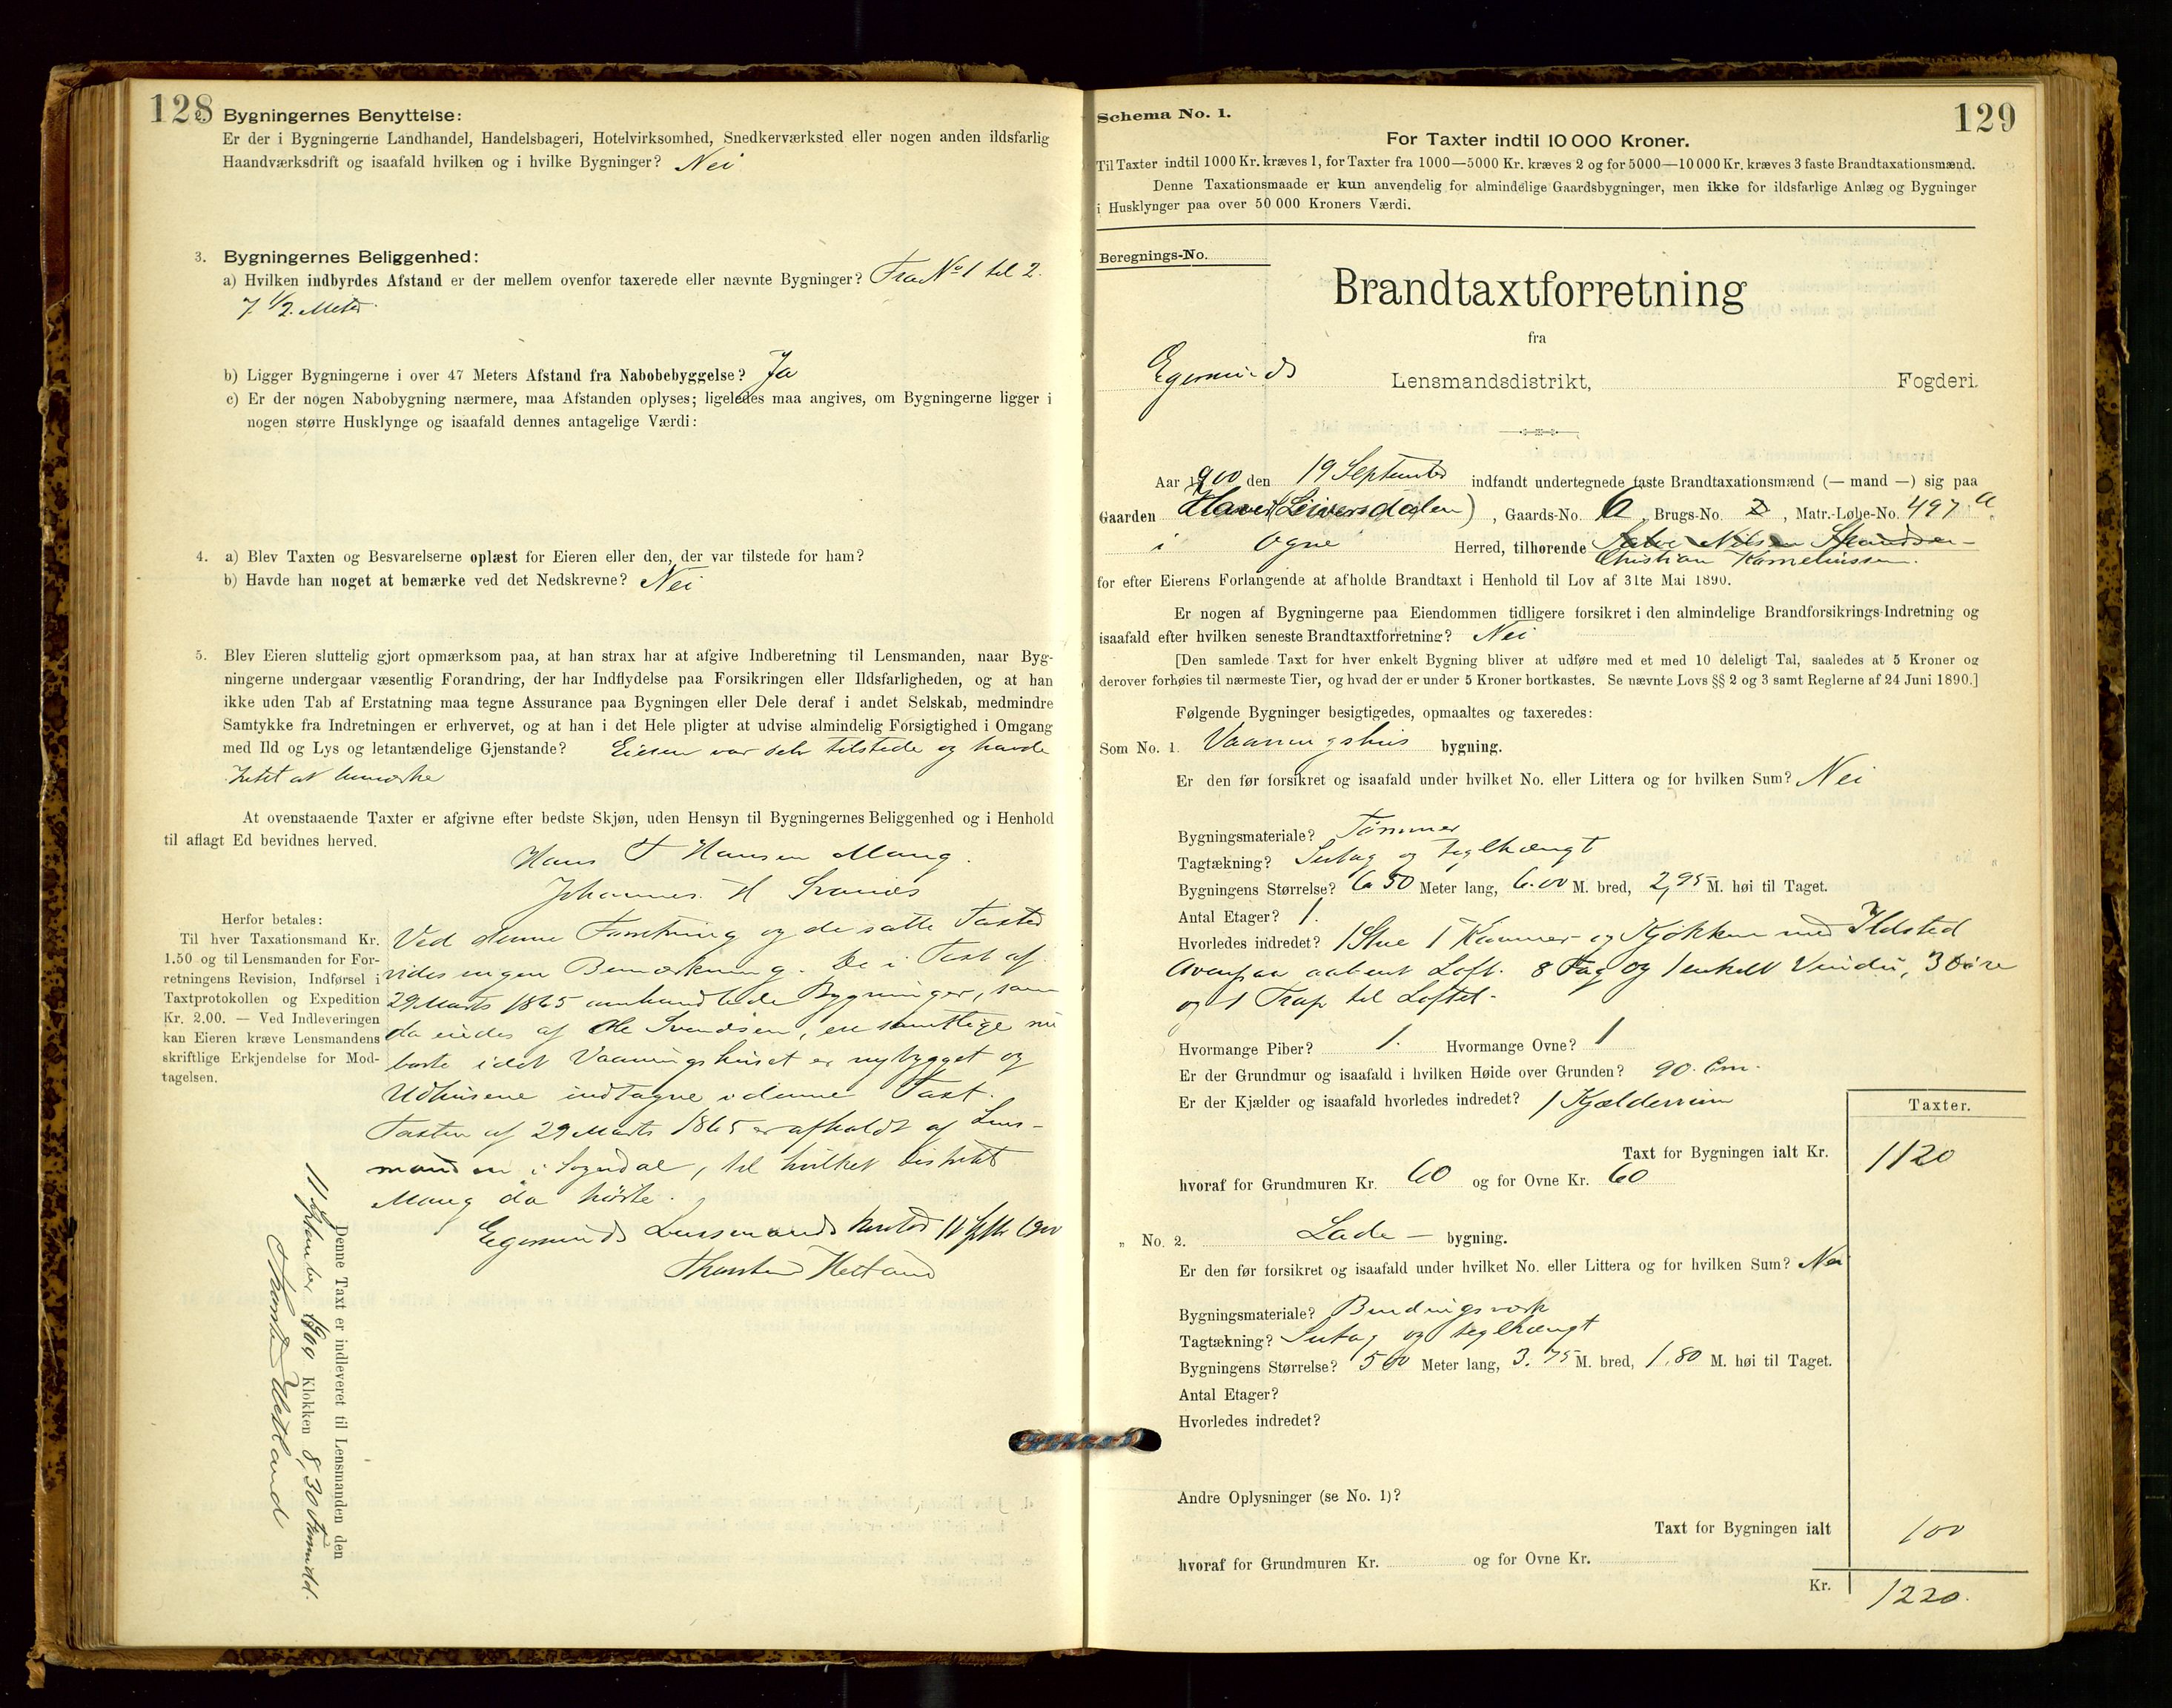 128
2. Bygningernes Benyttelse:
Er der i Bygningerne Landhandel, Handelsbageri, Hotelvirksomhed, Snedkerværksted eller nogen anden ildsfarlig
Haandværksdrift og isaafald hvilken og i hvilke Bygninger? Nei
3. Bygningernes Beliggenhed:
a) Hvilken indbyrdes Afstand er der mellem ovenfor taxerede eller nævnte Bygninger? Fra No 1 til 2.
7 1/2. Meter.
b) Ligger Bygningerne i over 47 Meters Afstand fra Nabobebyggelse? Ja
c) Er der nogen Nabobygning nærmere, maa Afstanden oplyses; ligeledes maa angives, om Bygningerne ligger i
nogen større Husklynge og isaafald dennes antagelige Værdi:
4. a) Blev Taxten og Besvarelserne oplæst for Eieren eller den, der var tilstede for ham?
b) Havde han noget at bemærke ved det Nedskrevne? Nei
5. Blev Eieren sluttelig gjort opmærksom paa, at han strax har at afgive Indberetning til Lensmanden, naar Byg-
ningerne undergaar væsentlig Forandring, der har Indflydelse paa Forsikringen eller Ildsfarligheden, og at han
ikke uden Tab af Erstatning maa tegne Assurance paa Bygningen eller Dele deraf i andet Selskab, medmindre
Samtykke fra Indretningen er erhvervet, og at han i det Hele pligter at udvise almindelig Forsigtighed i Omgang
med Ild og Lys og letantændelige Gjenstande? Eieren var selv tilstede og havde
Intet at bemærke
At ovenstaaende Taxter er afgivne efter bedste Skjøn, uden Hensyn til Bygningernes Beliggenhed og i Henhold
til aflagt Ed bevidnes herved.
Hans T Hansen Mong.
Johannes. H Svanes
Herfor betales:
Til hver Taxationsmand Kr.
1.50 og til Lensmanden for For-
retningens Revision, Indførsel i
Taxtprotokollen og Expedition
Kr. 2.00. — Ved Indleveringen
kan Eieren kræve Lensmandens
skriftlige Erkjendelse for Mod-
tagelsen.
Ved denne Forretning og de satte Taxter
vides ingen Bemærkning. De i Taxt af
29 Marts 1865 omhandlede Bygninger, som
da eiedes af Ole Svendsen, ere samtlige nu
borte idet Vaaningshuset er nybygget og
Udhusene indtagne i denne Taxt.
Taxten af 29 Marts 1865 er afholdt af Lens-
manden i Sogndal, til hvilket Distrikt
Mong da hørte.
Egersunds Lensmandskontor 11 Septbr 1900
Thorsten Hetland
Denne Taxt er indleveret til Lensmanden den
11 September 1900 Klokken 8,30 Formidd.
Thorsten Hetland
Schema No. 1.
129
For Taxter indtil 10 000 Kroner.
Til Taxter indtil 1000 Kr. kræves 1, for Taxter fra 1000—5000 Kr. kræves 2 og for 5000—10 000 Kr. kræves 3 faste Brandtaxationsmænd.
Denne Taxationsmaade er kun anvendelig for almindelige Gaardsbygninger, men ikke for ildsfarlige Anlæg og Bygninger
i Husklynger paa over 50 000 Kroners Værdi.
Beregnings-No.
Brandtaxtforretning
fra
Egersunds Lensmandsdistrikt, Fogderi.
Aar 1900 den 19 September indfandt undertegnede faste Brandtaxationsmænd (— mand —) sig paa
Gaarden (Leiversdalen), Gaards-No. 6, Brugs-No. 2, Matr.-Løbe-No. 497 a
i Ogne Herred, tilhørende
Christian Korneliussen.
for efter Eierens Forlangende at afholde Brandtaxt i Henhold til Lov af 31te Mai 1890.
Er nogen af Bygningerne paa Eiendommen tidligere forsikret i den almindelige Brandforsikrings-Indretning og
isaafald efter hvilken seneste Brandtaxtforretning? Nei
[Den samlede Taxt for hver enkelt Bygning bliver at udføre med et med 10 deleligt Tal, saaledes at 5 Kroner og
derover forhøies til nærmeste Tier, og hvad der er under 5 Kroner bortkastes. Se nævnte Lovs §§ 2 og 3 samt Reglerne af 24 Juni 1890.]
Følgende Bygninger besigtigedes, opmaaltes og taxeredes:
Som No. 1. Vaaningshus bygning.
Er den før forsikret og isaafald under hvilket No. eller Littera og for hvilken Sum? Nei
Bygningsmateriale? Tømmer
Tagtækning? Sutag og teglhængt
Bygningens Størrelse? 6.50 Meter lang, 6.00 M. bred, 2,95 M. høi til Taget.
Antal Etager? 1.
Hvorledes indredet? 1 Stue 1 Kammer og Kjøkken med Ildsted
Ovenpaa aabent Loft. 8 Fag og 1 enkelt Vindu, 3 Døre
og 1 Trap til Loftet.
Hvormange Piber? 1. Hvormange Ovne? 1
Er der Grundmur og isaafald i hvilken Høide over Grunden? 90. Cm.
Er der Kjælder og isaafald hvorledes indredet? 1 Kjælderrum
Taxter.
Taxt for Bygningen ialt Kr. 1120
hvoraf for Grundmuren Kr. 60 og for Ovne Kr. 60
„ No. 2. Lade — bygning.
Er den før forsikret og isaafald under hvilket No. eller Littera og for hvilken Sum? Nei
Bygningsmateriale? Bindingsværk
Tagtækning? Sutag og teglhængt
Bygningens Størrelse? 5 00 Meter lang, 3.75 M. bred, 1.80 M. høi til Taget.
Antal Etager?
Hvorledes indredet?
Andre Oplysninger (se No. 1)?
Taxt for Bygningen ialt 100
hvoraf for Grundmuren Kr. og for Ovne Kr.
Kr. 1220.